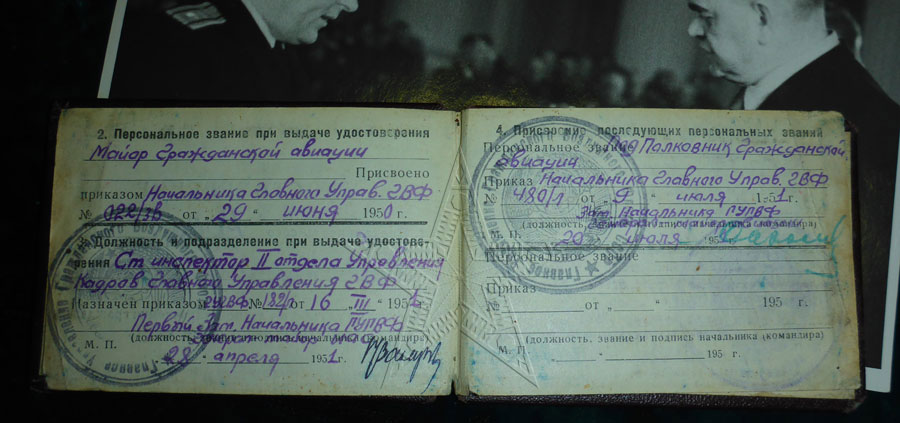 2. Персональное звание при выдаче удостоверения
Майор Гражданской авиации
Присвоено
приказом Начальника Главного Управ. ГВФ
№ 022/зв от „ 29 “ июня 1950 г.
3. Должность и подразделение при выдаче удостове-
рения Ст. инспектор II отдела Управления
Кадров Главного Управления ГВФ
Назначен приказом ГУГВФ № 182/л 16 III 1951 г.
Первый Зам. Начальника ГУГВФ
М. П. (должность, звание и подпись начальника/командира)
„ 28 “ апреля 1951 г.
4. Присвоение последующих персональных званий
Персональное звание Подполковник Гражданской
авиации
Приказ Начальника Главного Управ. ГВФ
№ 480/л от „ 9 “ июля 1951 г.
Зам. Начальника ГУГВФ
(должность, звание и подпись начальника/командира)
М. П. „ 20 “ июля 195
Персональное звание
Приказ
№ от „ “ 195 г.
(должность, звание и подпись начальника (командира)
М. П. „ “ 195 г.